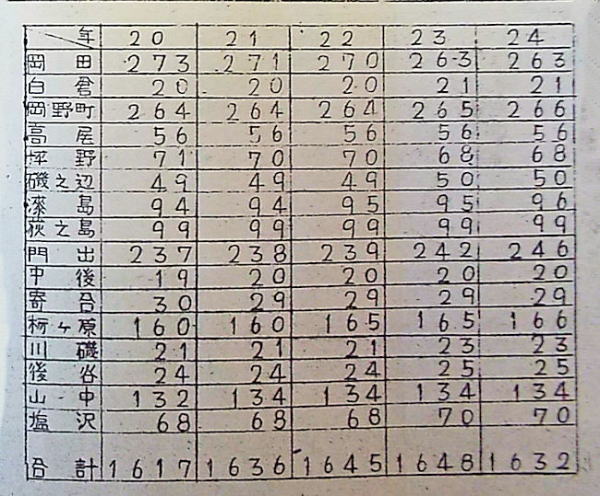 年 20 21 22 23 24
岡田 273 271 270 263 263
白倉 20 20 20 21 21
岡野町 264 264 264 265 266
高尾 56 56 56 56 56
坪野 71 70 70 68 68
磯之辺 49 49 49 50 50
漆島 94 94 95 95 96
荻之島 99 99 99 99 99
門出 237 238 239 242 246
中後 19 20 20 20 20
寄合 30 29 29 29 29
栃ヶ原 160 160 165 165 166
川磯 21 21 21 23 23
後谷 24 24 24 25 25
山中 132 134 134 134 134
塩沢 68 68 68 70 70
合計 1617 1636 1645 1648 1632